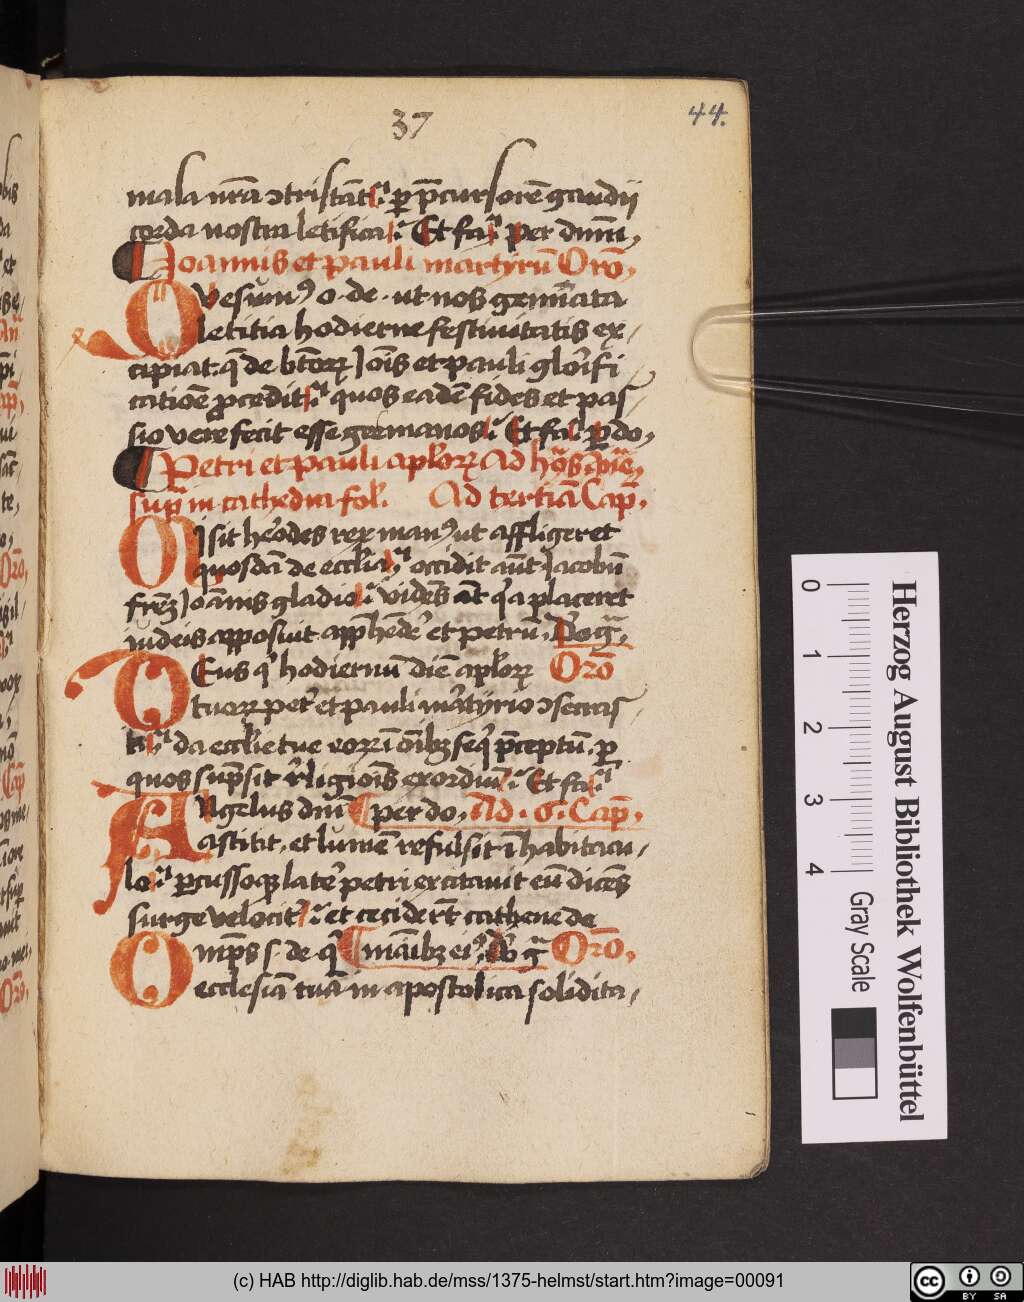 37
44.
mala nr̄a ɔtristāt᷑. ꝑ p̄cursorē gaudij
corda nostra letifica. Et fa. per dnm̄,
Joannis et pauli martyrū Orō,
Vesum᷒ o. de. ut nos gemīata
letitia hodierne festiuitatis ex,
cipiat. q̄ de bt̄orꝝ Joīs et pauli glorifi
catiōe ꝓcedit. quos eadē fides et pas
sio vere fecit esse germanos. Et fa. ꝑ do,
Petri et pauli aplorꝝ Ad
supͣ in cathedra fol. Ad tertiā Cap̄,
Misit herodes rex man᷒ ut affligeret
quosdā de eccl'ia. occidit aūt Jacobū
fr̄eꝫ Joānis gladio. videns at q'a placeret
iudeis apposuit appͤhēdͤe et petrū,
Deus q' hodiernū diē aplorꝝ Orō
tuorꝝ petͥ et pauli martyrio ɔsecras
ti. da eccl'ie tue eorꝝ ī oībꝫ seq' p̄ceptū. ꝑ
quos supͣsit r'ligiōis exordiū. Et fa.
Angelus dn̄i per do, Ad. 6. Cap̄,
astitit, et lumē refulsit ī habitacu,
lo. ꝑcussoqꝫ late' petri excitauit eū dicēs
surge velocit'. et cecider̄t cathene de
Omp̄s s. de. q' manibꝫ ei᷒, Orō,
ecclesiā tuā in apostolica solidita,
Orō,
Cap̄
Orō,
0
1
2
3
4
Herzog August Bibliothek Wolfenbüttel
Gray Scale
(c) HAB http://diglib.hab.de/mss/1375-helmst/start.htm?image=00091
cc
BY SA